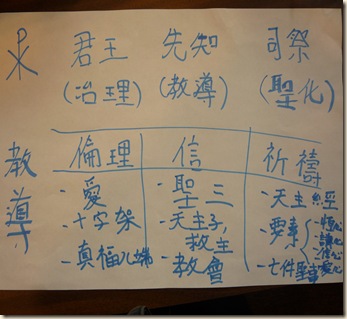 君王 先知 司祭
(治理) (教導) (聖化)
教導
倫理 信 祈禱
- 愛 - 聖三 - 天主經
- 十字架 - 天主子, 救主 - 要素
- 真福八端 - 教會 - 七件聖事